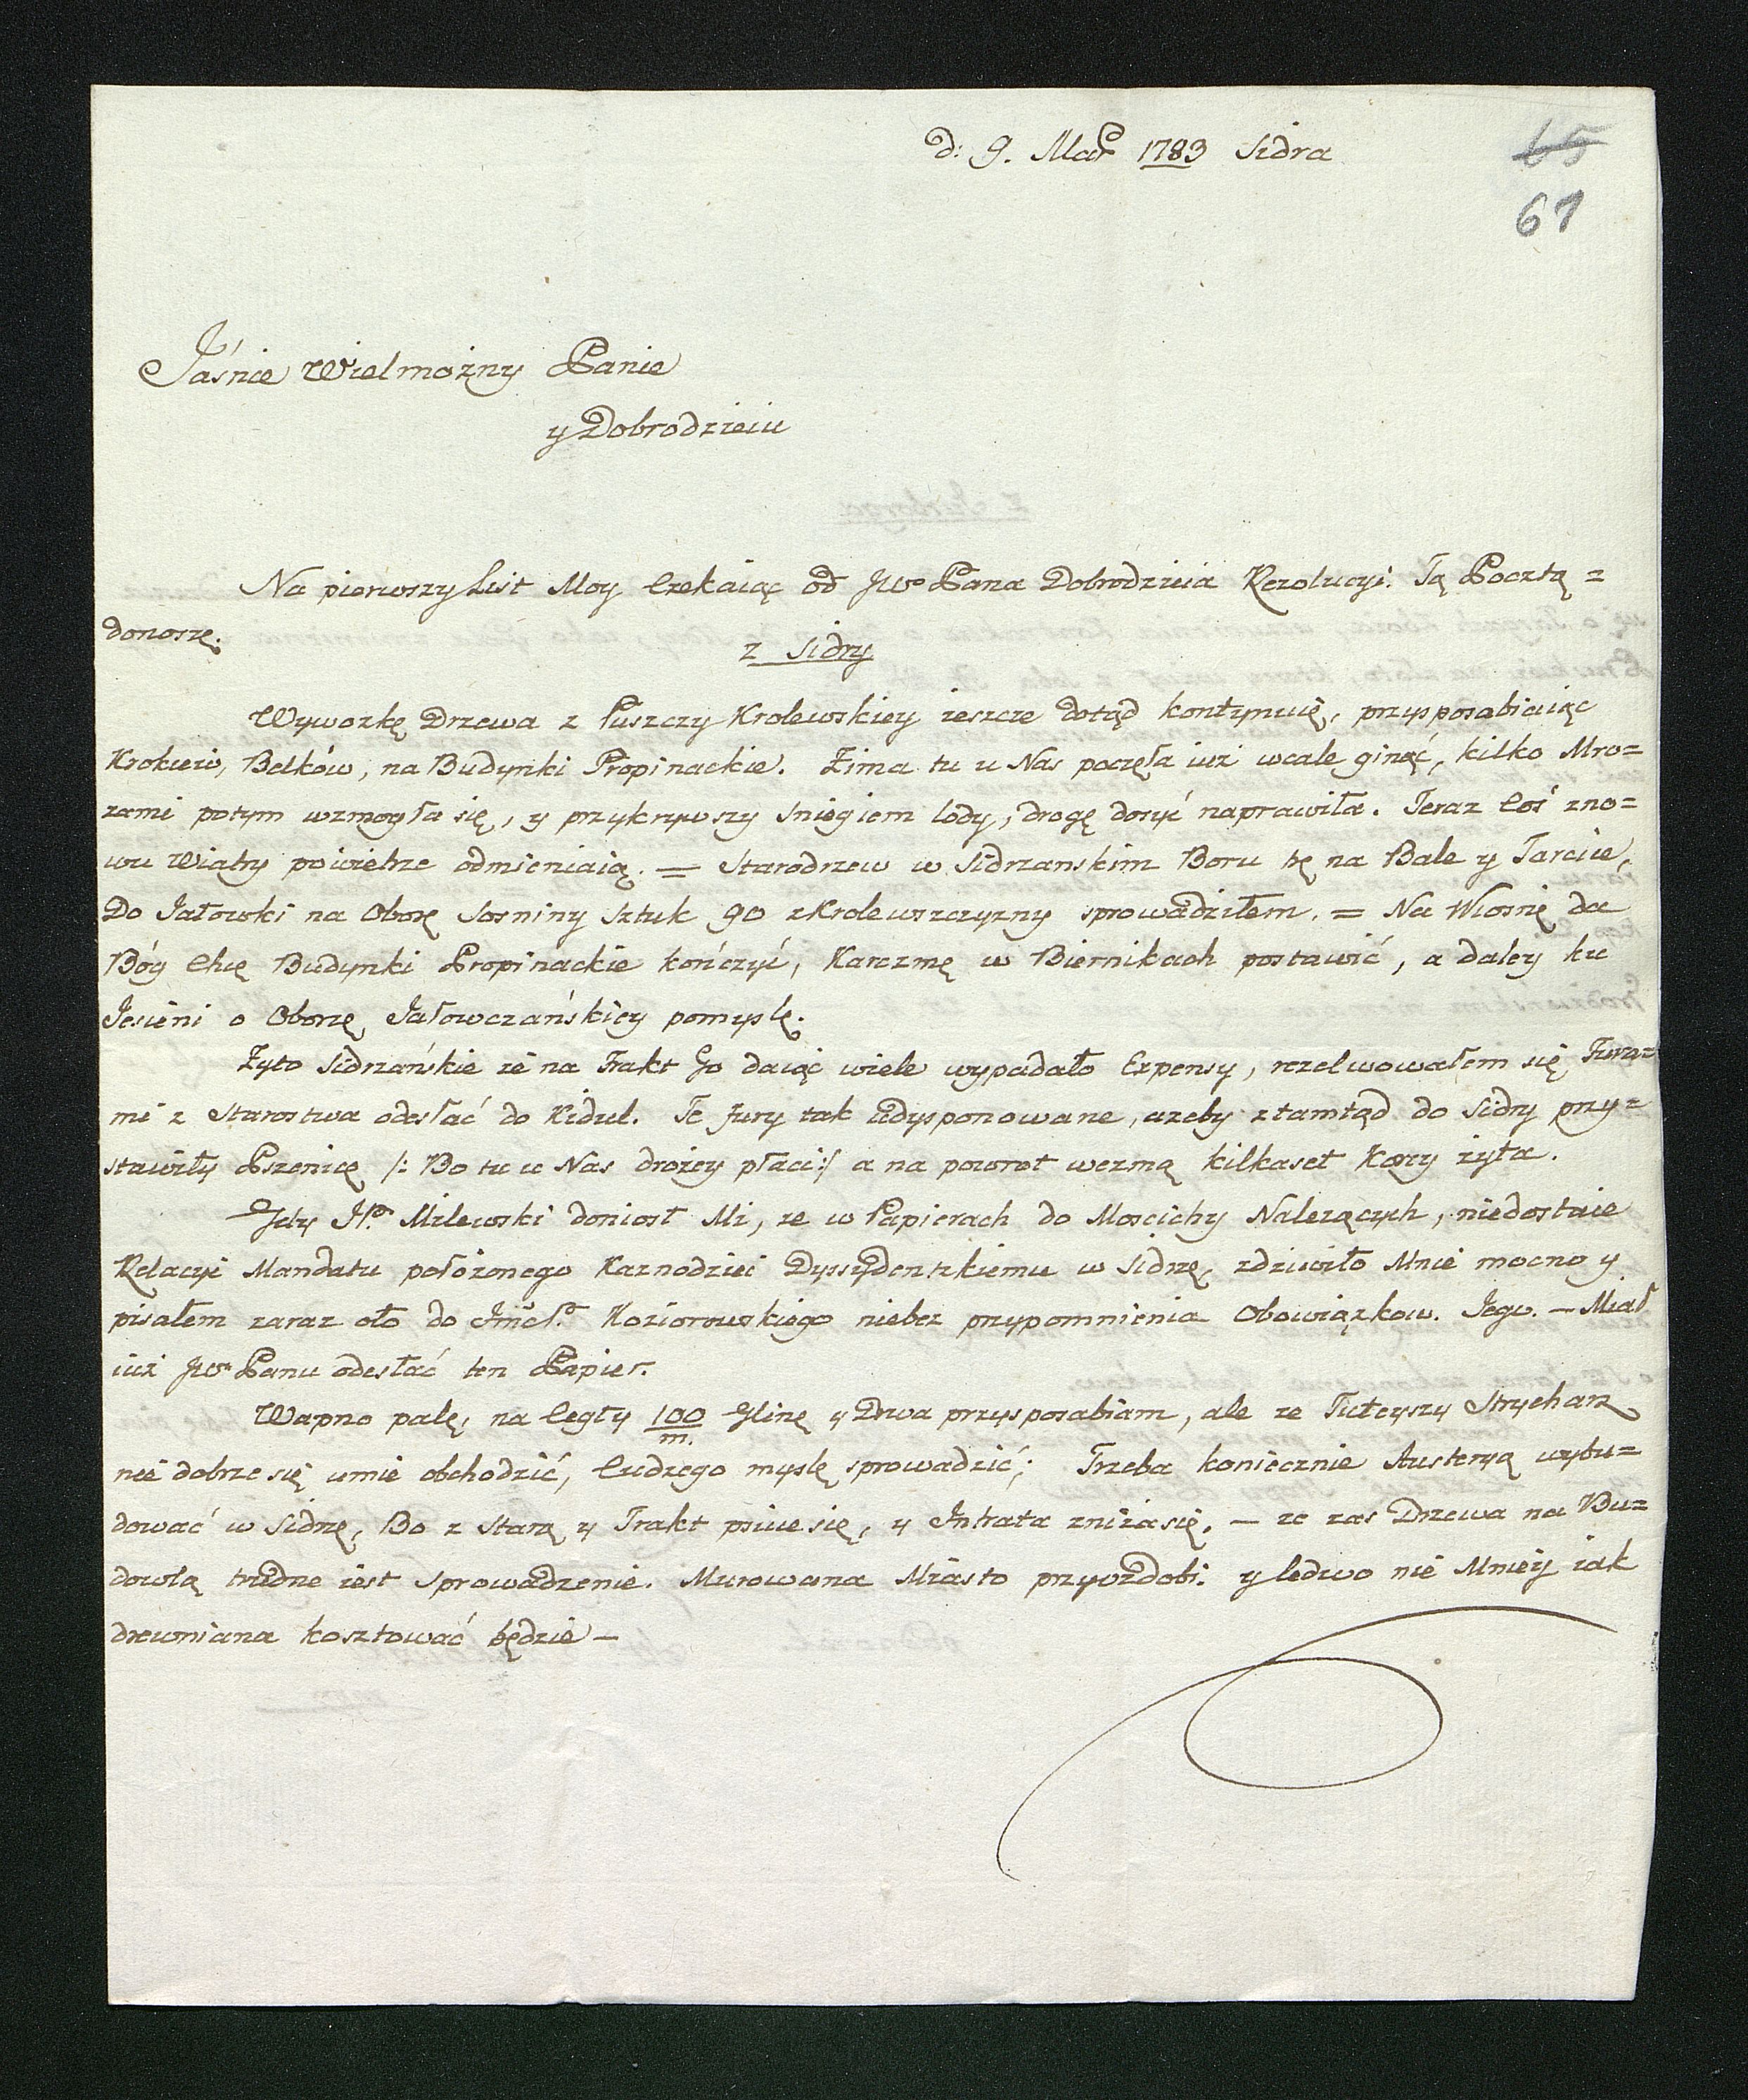 d: 9. Mar 1783 Sidra
65
61
Jaśnie Wielmożny Panie
y Dobrodzieiu
Na pierwszy List Moy Czekaiąc od JWo Pana Dobrodzieia Rezolucyi. Tą Pocztą =
donoszę.
z Sidry
Wywozkę Drzewa z Puszczy Krolewskiey ieszcze dotąd kontynuię, przysposabiaiąc
Krokwiow, Belków, na Budynki Propinackie. Zima tu u Nas poczęła iuż wcale ginąć, kilko Mro=
zami potym wzmogła się, y przykrywszy sniegiem lody, drogę dosyć naprawiła. Teraz Coś zno=
wu Wiatry powietrze odmieniaią. = Starodrzew w Sidrzanskim Boru tę na Bale y Tarcice,
Do Jałowki na Oborę Sosniny Sztuk 90 z Krolewszczyzny sprowadziłem. = Na Wiosnę da
Bóg Chcę Budynki Propinackie kończyć, Karczmę w Biernikach postawić, a daley ku
Jesieni o Oborze Jałowczańskiey pomyslę.
Zyto Sidrzańskie że na Trakt Go daiąc wiele wypadało Expensy, rezolwowałem się Fura=
mi z Starostwa odesłać do Kidul. Te fury tak udysponowane, azeby ztamtąd do Sidry przy=
stawiły Pszenicę /: Bo tu u Nas drożey płaci :/ a na powrot wezmą kilkaset Korcy żyta.
Gdy JP. Milewski doniosł Mi, ze w Papierach do Moscichy Nalezących, niedostaie
Relacyi Mandatu położonego Kaznodziei Dyssydentskiemu w Sidrze, zdziwiło Mnie mocno y
pisałem zaraz oto do Jmć P. Koziorowskiego niebez przypomnienia Obowiązkow. Jego. — Miał
iuż JWo Panu odesłać ten Papier.
Wapno palę, na Cegły 100/m. Glinę y Drwa przysposabiam, ale ze Tuteyszy Strycharz
nie dobrze się umie obchodzić, Cudzego myslę sprowadzić; Trzeba koniecznie Austeryą wybu=
dować w Sidrze, Bo z Starą y Trakt psuie się, y Intrata zniża się. — ze zas Drzewa na Bu=
dowlą trudne iest Sprowadzenie. Murowana Miasto przyozdobi. y ledwo nie Mniey iak
drewniana kosztować będzie —